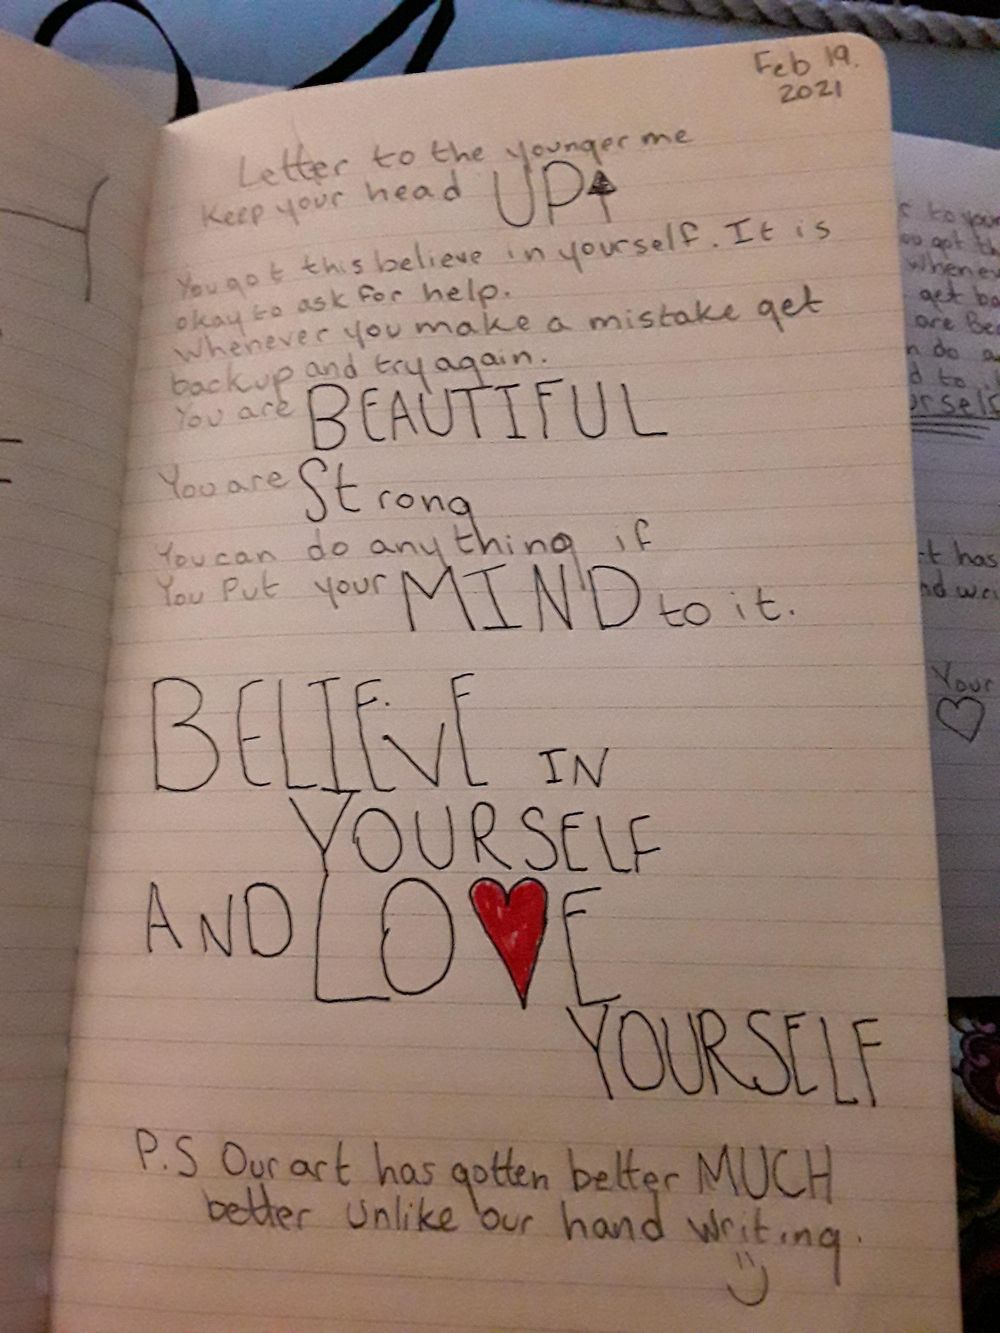 Feb 19.
2021
Letter to the younger me
Keep your head UP
You got this believe in yourself. It is
okay to ask for help.
Whenever you make a mistake get
back up and try again.
You are BEAUTIFUL
You are Strong
You can do anything if
You Put your MIND to it.
BELIEVE IN
YOURSELF
AND LO♥E
YOURSELF
P.S Our art has gotten better MUCH
better unlike our hand writing.
to your
got th
whenev
get ba
are Be
do a
to it
urself
t has
nd wri
Your